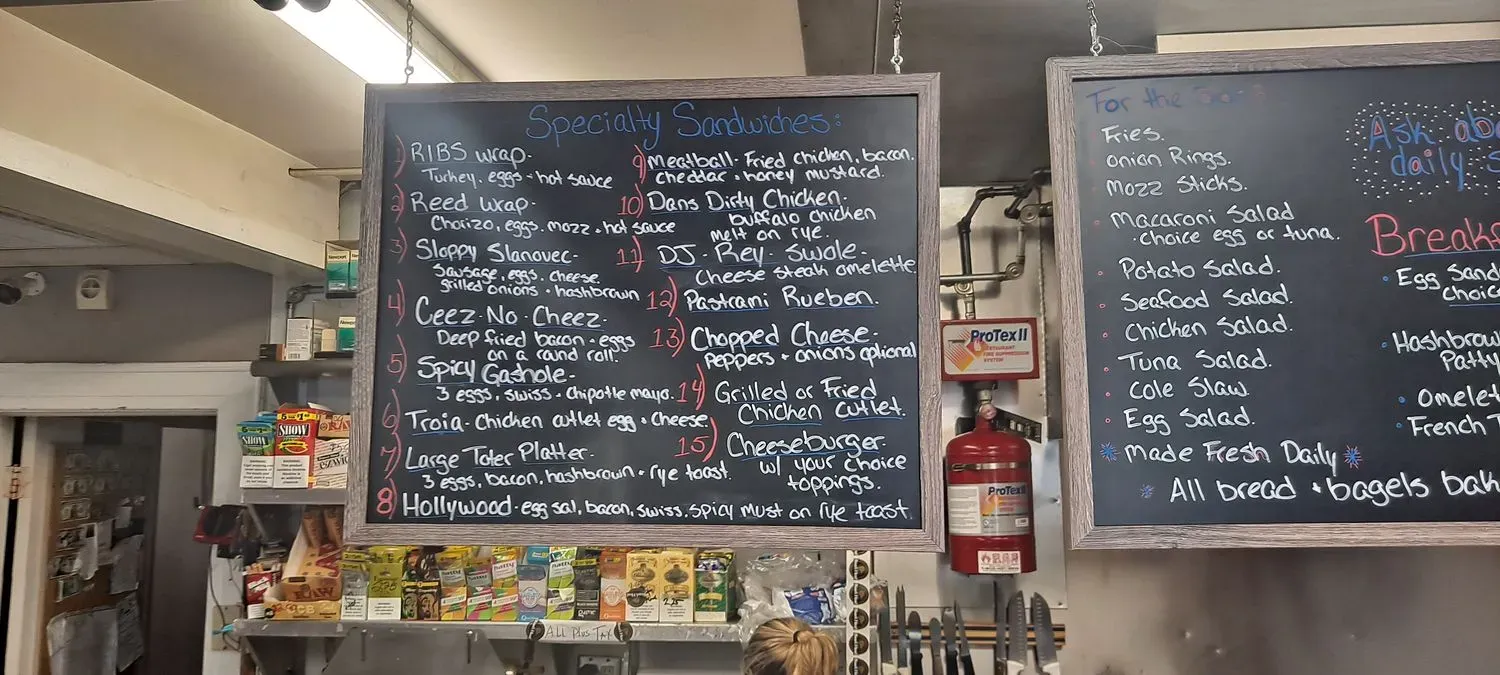 Specialty Sandwiches:
1) RIBS wrap-
Turkey, eggs + hot sauce
2) Reed wrap-
Chorizo, eggs, mozz + hot sauce
3) Sloppy Slanovec-
Sausage, eggs, cheese,
grilled onions + hashbrown
4) Ceez-No-Cheez-
Deep fried bacon + eggs
on a round roll.
5) Spicy Gashole-
3 eggs, swiss + chipotle mayo.
6) Troia-Chicken cutlet egg + cheese.
7) Large Toter Platter-
3 eggs, bacon, hashbrown + rye toast.
8) Hollywood-egg sal, bacon, swiss, spicy must on rye toast.
9) Meatball-Fried chicken, bacon,
cheddar + honey mustard.
10) Dans Dirty Chicken-
buffalo chicken
melt on rye.
11) DJ-Rey-Swole-
Cheese steak omelette.
12) Pastrami Rueben.
13) Chopped Cheese-
peppers + onions optional
14) Grilled or Fried
Chicken Cutlet.
15) Cheeseburger-
w/ your choice
toppings.
For the
Fries.
Onion Rings.
Mozz Sticks.
Macaroni Salad
choice egg or tuna.
Potato Salad.
Seafood Salad.
Chicken Salad.
Tuna Salad.
Cole Slaw
Egg Salad.
Made Fresh Daily
Ask abo
daily s
Breakf
Egg Sand
choic
Hashbrow
Patty
Omelet
French T
All bread + bagels bak
ProTex II
RESTAURANT
FIRE SUPPRESSION
SYSTEM
ProTex II
Newport
Newport
SHOW
SHOW
RAW
RAW
ALL Plus TAX